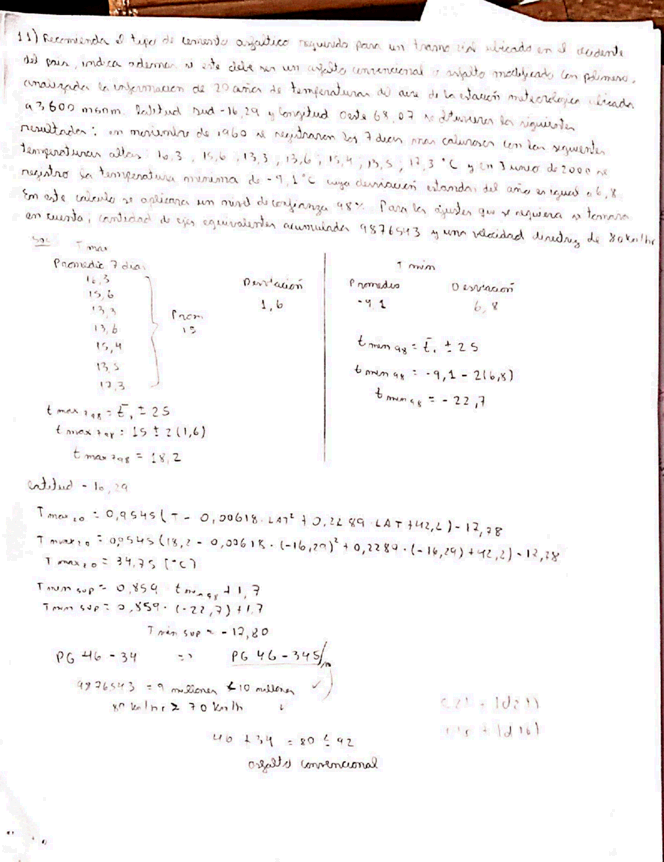 11) Recomienda el tipo de cemento asfáltico requerido para un tramo vial ubicado en el occidente
del pais, indica ademas si este debe ser un asfalto convencional o asfalto modificado con polimero,
analizada la informacion de 20 años de temperaturas del aire de la estación meteorológica ubicada
a 3,600 msnm. latitud sud -16,29 y longitud Oeste 68,07 se obtuvieron los siguientes
resultados: en noviembre de 1960 se registraron los 7 dias mas calurosos con las siguientes
temperaturas altas 16,3 , 15,6 , 13,3 , 13,6 , 15,4 , 13,5 , 17,3 °C y en 3 junio de 2000 se
registro la temperatura minima de -9,1 °C cuya desviación estandar del año es igual a 6,8.
En este calculo se aplicara un nivel de confianza 98%. Para los ajustes que se requiera se tomara
en cuenta; cantidad de ejes equivalentes acumulados 9876543 y una velocidad directriz de 80 km/hr
Sol: T max
Promedio 7 dias
16,3
15,6
13,3
13,6
15,4
13,5
17,3
Prom
15
Desviación
1,6
t max 7 98 = t̄, ± 2S
t max 7 98 = 15 ± 2(1,6)
t max 7 98 = 18,2
T min
Promedio Desviación
-9,1 6,8
t min 98 = t̄, ± 2S
t min 98 = -9,1 - 2(6,8)
t min 98 = -22,7
latitud -16,29
T max 20 = 0,9545(T - 0,00618 · LAT² + 0,2289 · LAT + 42,2) - 17,78
T max 20 = 0,9545(18,2 - 0,00618 · (-16,29)² + 0,2289 · (-16,29) + 42,2) - 17,78
T max 20 = 34,75 [°C]
T min sup = 0,859 · t min 98 + 1,7
T min sup = 0,859 · (-22,7) + 1,7
T min sup = -17,80
PG 46 - 34 => PG 46 - 34 S/
9876543 = 9 millones < 10 millones ✓
80 km/hr ≥ 70 km/h
46 + 34 = 80 ≤ 92
asfalto convencional